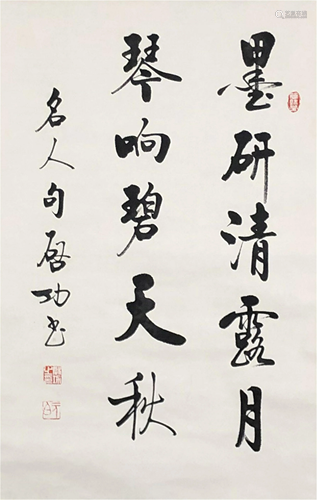 墨研清露月
琴响碧天秋
名人句启功书